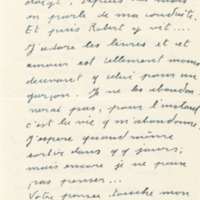 on parle de ma conduite.
Et puis Robert y vit ....
J'adore les livres et cet
amour est tellement moins
décevant q celui pour un
garçon. Je ne les abandon-
nerai pas, pour l'instant
c'est la vie q m'abandonne.
J'espère quand même
sortir dans qq jours,
mais encore je ne peux
pas penser ...
Votre penser touche mon